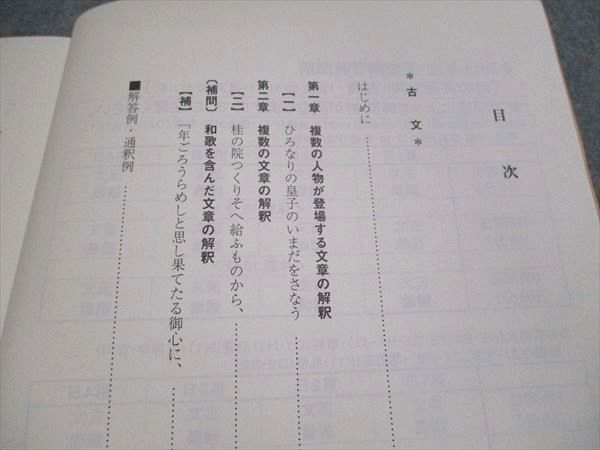 目次
＊古文＊
はじめに……………………
第一章 複数の人物が登場する文章の解釈
【一】 ひろなりの皇子のいまだをさなう……
第二章 複数の文章の解釈
【二】 桂の院つくりそへ給ふものから、……
〔補問〕 和歌を含んだ文章の解釈
【補】 「年ごろうらめしと思し果てたる御心に、……
■解答例・通釈例……………………